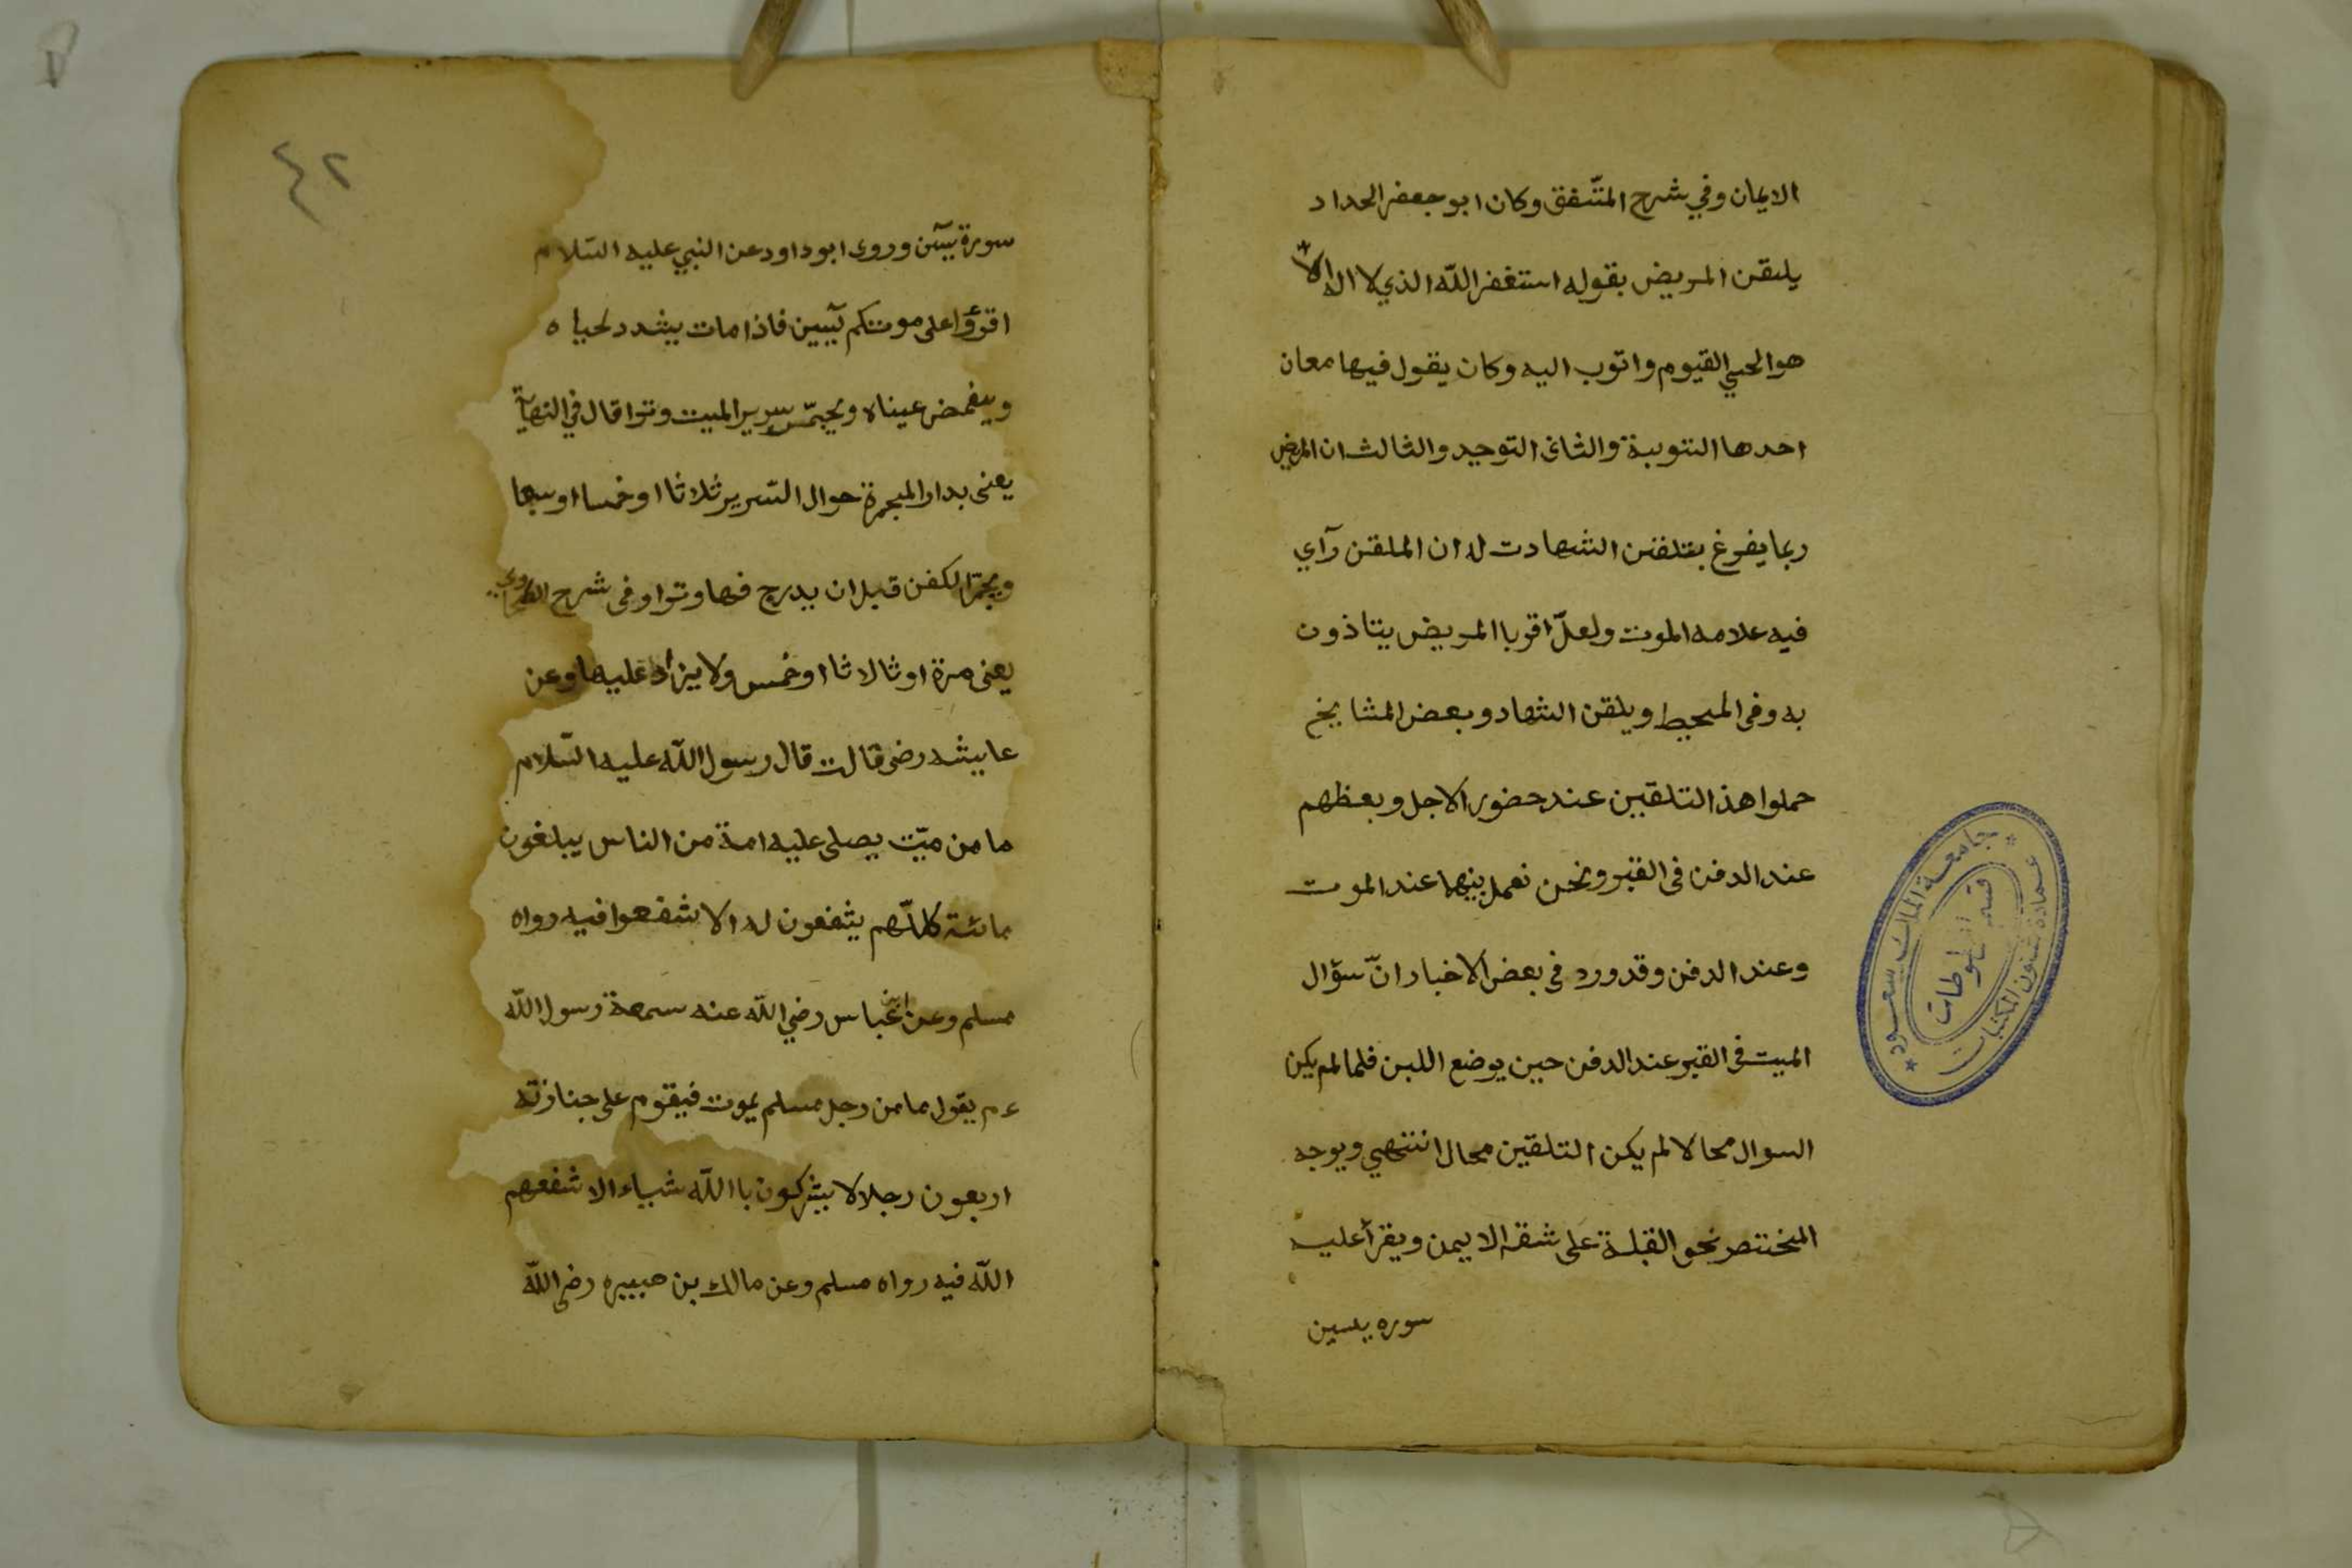 الايمان وفي شرح المتّفق وكان ابو جعفر الحداد
يلقن المريض بقوله استغفر الله الذي لا اله الاّ
هو الحي القيوم واتوب اليه وكان يقول فيها معان
احدها التوبة والثانى التوحيد والثالث ان المريض
ربما يفرغ بتلقن الشهادت له ان الملقن رآي
فيه علامه الموت ولعلّ اقربا المريض يتاذون
به وفى المحيط ويلقن الشهاد وبعض المشايخ
حملوا هذ التلقين عند حضور الاجل وبعظهم
عند الدفن فى القبر ونحن نعمل بينهما عند الموت
وعند الدفن وقد ورد فى بعض الاخبار انّ سؤال
الميت فى القبر عند الدفن حين يوضع اللبن فلما لم يكن
السوال محالا لم يكن التلقين محال انتهي ويوجه
المختصر نحو القبلة على شقه الايمن ويقرأ عليه
سوره يسين
٤٢
سورة يسن وروى ابو داود عن النبي عليه السّلام
اقرؤا على موتكم يسين فاذا مات يشدد لحياه
ويغمض عيناه ويجمّر سرير الميت وترا قال في النهاية
يعنى بدار المجمرة حوال السّرير ثلاثا او خمسا او سبعا
ويجمّر الكفن قبل ان يدرج فيها وترا وفى شرح الطحاوي
يعنى مرة او ثالاثا او خمس ولا يزاد عليها وعن
عايشه رضى قالت قال رسول الله عليه السّلام
ما من ميّت يصلى عليه امة من الناس يبلغون
مائة كلّهم يشفعون له الا شفعوا فيه رواه
مسلم وعن ابن عباس رضي الله عنه سمعة رسول الله
عم يقول ما من رجل مسلم يموت فيقوم على جنازته
اربعون رجلا لا يشركون با الله شياء الا شفعهم
الله فيه رواه مسلم وعن مالك بن هبيره رضى الله
جامعة الملك سعود
قسم المخطوطات
عمادة شئون المكتبات